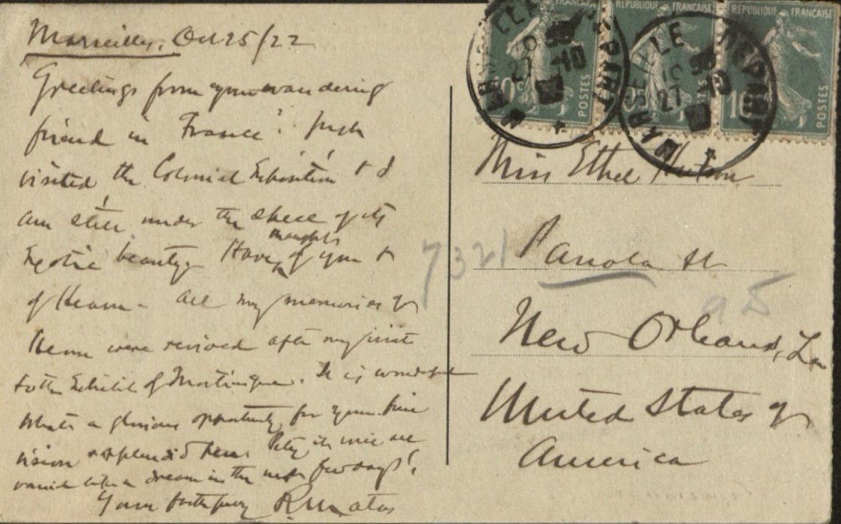 Marseilles, Oct 25/22
Greetings from your wandering
friend in France! Just
visited the Colonial Exhibition & I
am still under the spell of its
Exotic beauty. Have thoughts of you &
of Hearn - All my memories of
Hearn were revived after my visit
to the Exhibit of Martinique. It is wonderful
What a glorious opportunity for your fine
vision & splendid pen! Pity it will all
vanish like a dream in the next few days!
Yours faithfully R Matas
RÉPUBLIQUE FRANÇAISE
POSTES
MARSEILLE DEPART
27 -10
Miss Ethel Hutson
7321 Panola St
95
New Orleans, La
United States of
America